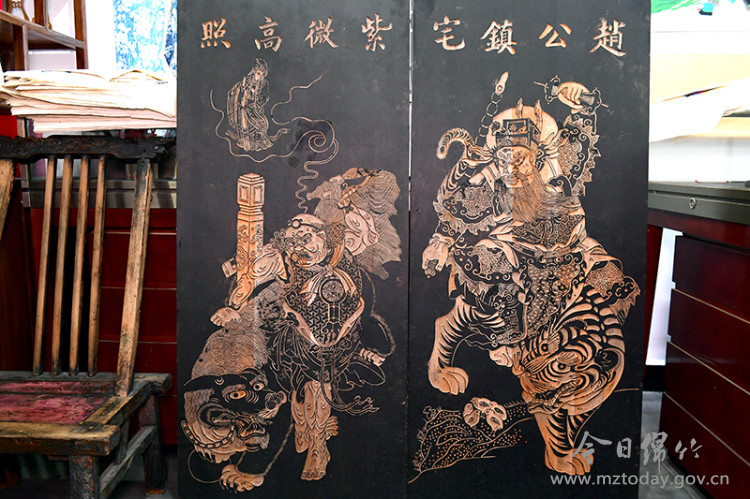 趙公鎮宅
紫微高照
今日绵竹
www.mztoday.gov.cn